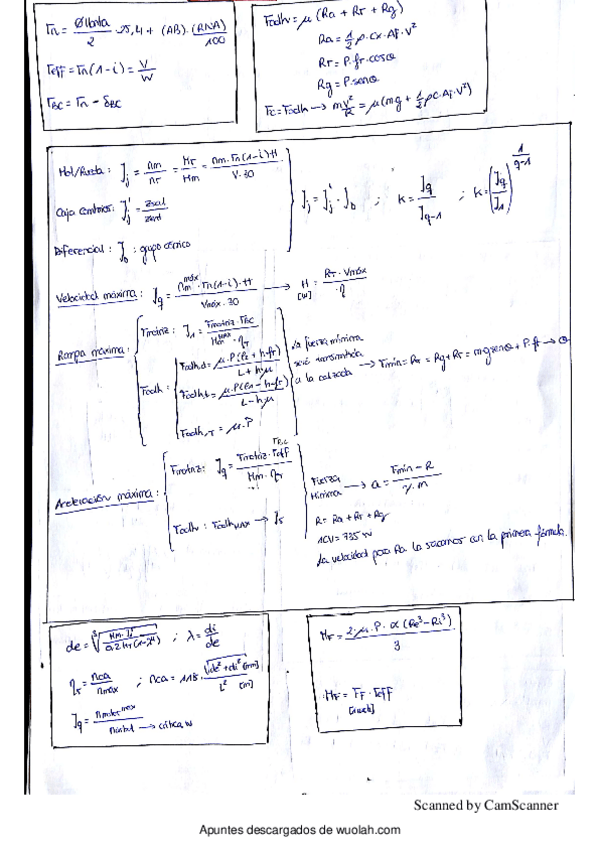 rn = Ø llanta / 2 · 25,4 + (AB) · (RNA) / 100
reff = rn (1-i) = V / W
rBC = rn - δBC
Fadh = μ (Ra + Rr + Rg)
Ra = 1/2 ρ · Cx · Af · V²
Rr = P · fr · cosθ
Rg = P · senθ
Fc = Fadh → mv² / R = μ (mg + 1/2 ρC · Af · V²)
Mot/Rueda : Jj = nm / nr = Mr / Mm = nm · rn (1-i) · π / V · 30
Caja cambios: J'j = zsal / zent
Diferencial : Jo : grupo cónico
Jj = J'j · Jo ; k = Jq / Jq-1 ; k = (Jq / J1) 1 / q-1
Velocidad máxima : Jq = nm máx · rn (1-i) · π / Vmáx · 30 → H [W] = RT · Vmáx / η
Rampa máxima :
Fmotriz : J1 = Fmotriz · rBC / Mm máx · ηT
Fadh :
Fadh,T = μ · P
la fuerza mínima
será transmitida
a la calzada → Fmin = Rr = Rg + Rr = mg senθ + P · fr → θ
Aceleración máxima :
Fmotriz: Jq = Fmotriz · reff / Mm · ηT
Fadh : Fadh MAX → Js
Fuerza
Mínima → a = Fmin - R / γ · m
R = Ra + Rr + Rg
1CV = 735 W
La velocidad para Ra la sacamos con la primera fórmula.
; λ = di / de
ηs = nca / nmax ; nca = 118 · √de² + di² [m] / L² [m]
Mf = 2 · μ · P · α (Re³ - Ri³) / 3
MF = FF · reff
Scanned by CamScanner
Apuntes descargados de wuolah.com